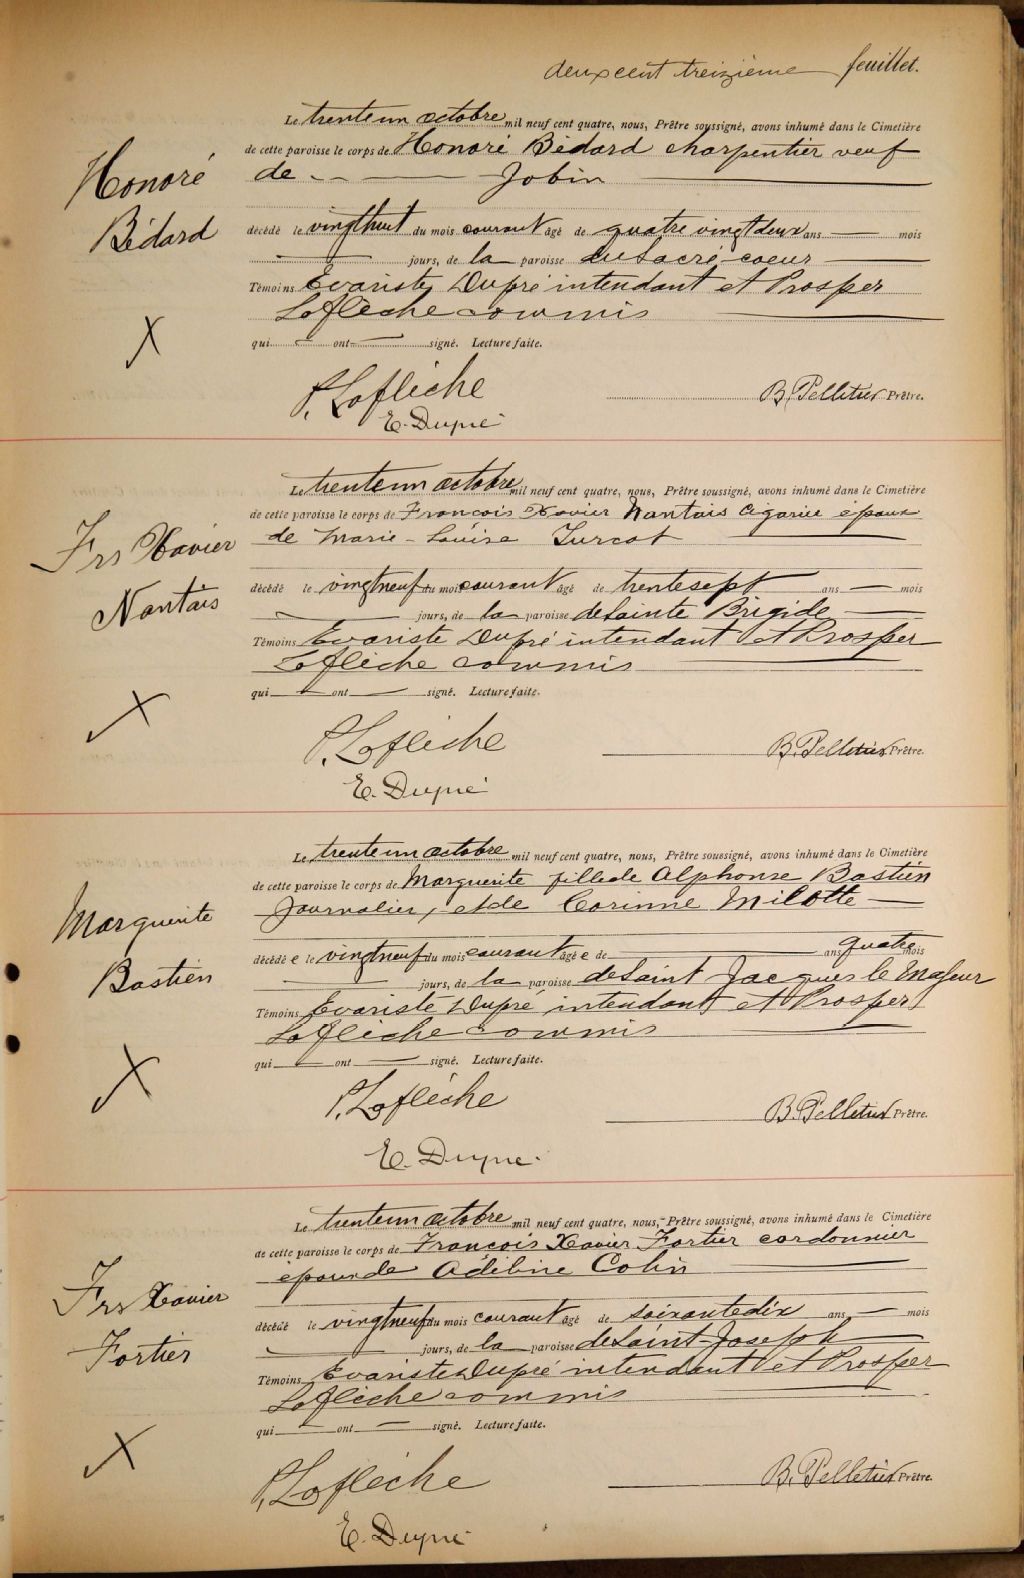 deux cent treizième feuillet.
Honoré
Bédard
X
Le trente un octobre mil neuf cent quatre, nous, Prêtre soussigné, avons inhumé dans le Cimetière
de cette paroisse le corps de Honoré Bédard charpentier veuf
de - — Jobin —
décédé le vingthuit du mois courant âgé de quatre vingtdeux ans — mois
— jours, de la paroisse du Sacré-coeur —
Témoins Evariste Dupré intendant et Prosper
Laflèche commis —
qui — ont — signé. Lecture faite.
P. Laflèche
B. Pelletier Prêtre.
E. Dupré
Frs Xavier
Nantais
X
Le trente un octobre mil neuf cent quatre, nous, Prêtre soussigné, avons inhumé dans le Cimetière
de cette paroisse le corps de Francois Xavier Nantais cigarier époux
de Marie-Louise Turcot
décédé le vingtneuf du mois courant âgé de trentesept ans — mois
— jours, de la paroisse de Sainte Brigide —
Témoins Evariste Dupré intendant et Prosper
Laflèche commis —
qui — ont — signé. Lecture faite.
P. Laflèche
B. Pelletier Prêtre.
E. Dupré
Marguerite
Bastien
X
Le trente un octobre mil neuf cent quatre, nous, Prêtre soussigné, avons inhumé dans le Cimetière
de cette paroisse le corps de Marguerite fille de Alphonse Bastien
journalier, et de Corinne Milotte —
décédée le vingtneuf du mois courant âgée de — ans quatre mois
— jours, de la paroisse de Saint Jacques le Majeur
Témoins Evariste Dupré intendant et Prosper
Laflèche commis —
qui — ont — signé. Lecture faite.
P. Laflèche
B. Pelletier Prêtre.
E. Dupré
Frs Xavier
Fortier
X
Le trente un octobre mil neuf cent quatre, nous, Prêtre soussigné, avons inhumé dans le Cimetière
de cette paroisse le corps de François Xavier Fortier cordonnier
époux de Adéline Colin
décédé le vingtneuf du mois courant âgé de soixantedix ans — mois
— jours, de la paroisse de Saint-Joseph —
Témoins Evariste Dupré intendant et Prosper
Laflèche commis —
qui — ont — signé. Lecture faite.
P. Laflèche
B. Pelletier Prêtre.
E. Dupré